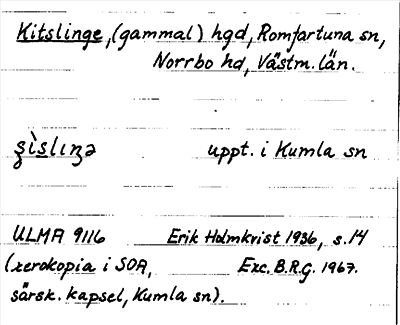 Kitslinge, (gammal) hgd, Romfartuna sn,
Norrbo hd, Västm. län.
uppt. i Kumla sn
ULMA 9116 Erik Holmkvist 1936, s. 14
(xerokopia i SOA, Exc. B.R.G. 1967.
särsk. kapsel, Kumla sn).